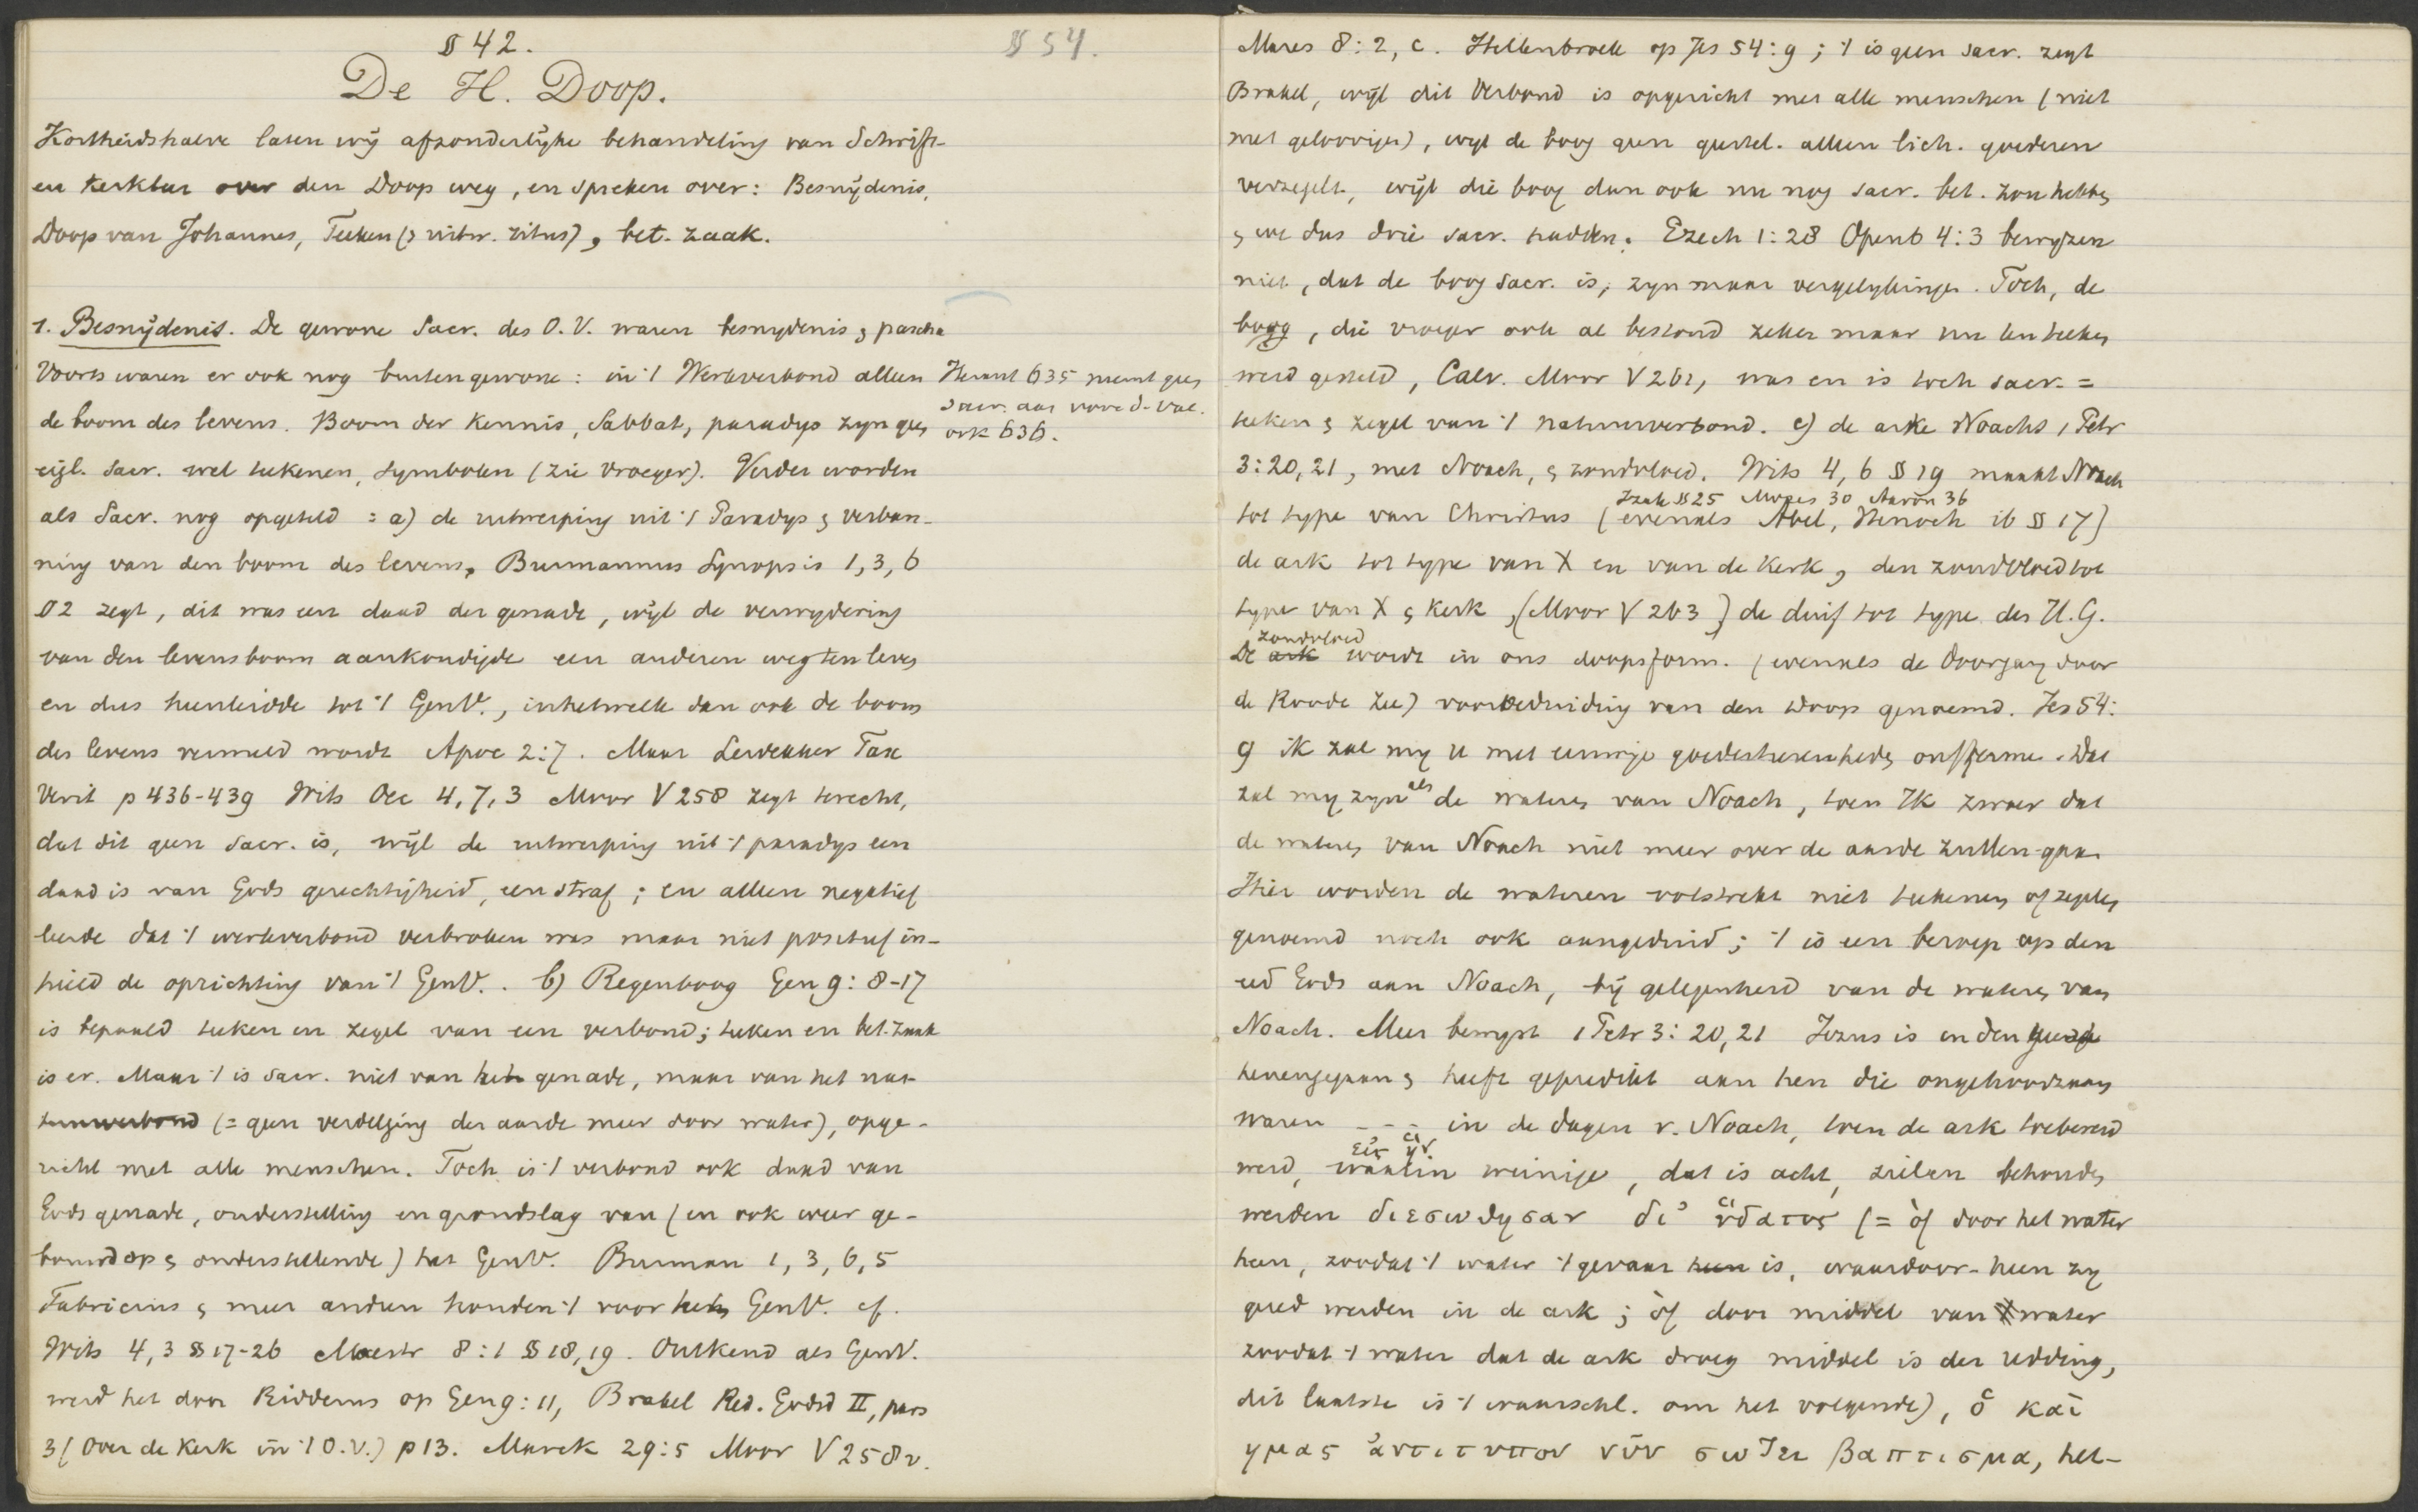 § 42.
§ 54.
De H. Doop.
Kortheidshalve laten wij afzonderlijke behandeling van Schrift-
en kerkleer over den Doop weg, en spreken over: Besnijdenis,
Doop van Johannes, Teeken (> uitw. ritus), bet. zaak.
1. Besnijdenis. De gewone Sacr. des O.V. waren besnijdenis & pascha
Voorts waren er ook nog buitengewone: in 't Werkverbond alleen
de boom des levens. Boom der Kennis, Sabbat, paradys zyn geen
eigl. Sacr. wel teekenen, symbolen (zie vroeger). Verder worden
als Sacr. nog opgeteld: a) de uitwerping uit 't Paradys & verban-
ning van den boom des levens. Burmannus Synopsis 1, 3, 6
§ 2 zegt, dit was een daad der genade, wijl de verwydering
van den levensboom aankondigde een anderen weg ten leven
en dus heenleidde tot 't GenV., in hetwelk dan ook de boom
des levens vermeld wordt Apoc 2:7. Maar Leydekker Fax
Verit p 436-439 Wits Oec 4, 7, 3 Moor V 258 zegt terecht,
dat dit geen Sacr. is, wijl de uitwerping uit 't paradys een
daad is van Gods gerechtigheid, een straf; en alleen negatief
leerde dat 't werkverbond verbroken was maar niet positief in-
hield de oprichting van 't GenV.. b) Regenboog Gen 9: 8-17
is bepaald teeken en zegel van een verbond; teeken en bet. zaak
is er. Maar 't is Sacr. niet van het genade, maar van het nat-
uurverbond (= geen verdelging der aarde meer door water), opge-
richt met alle menschen. Toch is 't verbond ook daad van
Gods genade, onderstelling en grondslag van (en ook weer ge-
bouwd op & onderstellende) het GenV. Burman 1, 3, 6, 5
Fabricius & meer anderen houden 't voor het GenV. cf.
Wits 4, 3 §§ 17-26 Mastr 8:1 § 18, 19. Ontkend als GenV.
werd het door Ridderus op Gen 9:11, Brakel Red. Godsd II, pars
3 (Over de Kerk in 't O.V.) p 13. Marck 29:5 Moor V 258 v.
Heraut 635 neemt geen
Sacr. aan vóór d. val.
ook 636.
Mares 8:2, c. Hellenbroek op Jes 54:9; 't is geen sacr. zegt
Brakel, wijl dit Verbond is opgericht met alle menschen (niet
met geloovigen), wijl de boog geen geestel. alleen lich. goederen
verzegelt, wijl die boog dan ook nu nog sacr. bet. zou hebben
& we dus drie sacr. hadden. Ezech 1:28 Openb 4:3 bewyzen
niet, dat de boog sacr. is, zyn maar vergelykingen. Toch, de
boog, die vroeger ook al bestond zeker maar nu ten teeken
werd gesteld, Calv. Moor V 261, was en is toch sacr. =
teeken & zegel van 't natuurverbond. c) de arke Noachs 1 Petr
3:20,21, met Noach, & zondvloed. Wits 4, 6 § 19 maakt Noach
tot type van Christus (evenals Abel, Henoch ib § 17)
Izak § 25 Mozes 30 Aaron 36
de ark tot type van X en van de Kerk, den zondvloed tot
type van X & Kerk, (Moor V 263) de duif tot type des H.G.
De ark wordt in ons doopsform. (evenals de doorgang door
zondvloed
de Roode Zee) voorbeduiding van den Doop genoemd. Jes 54:
9 ik zal my u met eeuwige goedertierenheden ontfermen. Dat
zal my zyn als de wateren van Noach, toen Ik zwoer dat
de wateren van Noach niet meer over de aarde zullen gaan
Hier worden de wateren volstrekt niet teekenen of zegelen
genoemd noch ook aangeduid; 't is een beroep op den
eed Gods aan Noach, bij gelegenheid van de wateren van
Noach. Meer bewyst 1 Petr 3:20,21 Jezus is in den geest
henengegaan & heeft gepredikt aan hen die ongehoorzaam
waren - - - in de dagen v. Noach, toen de ark toebereid
werd, waarin weinige, dat is acht, zielen behouden
εἰς ἥν
werden διεσωθησαν δι' ὕδατος (= òf door het water
heen, zoodat 't water 't gevaar heen is, waardoor-heen zy
gered werden in de ark; òf door middel van 't water
zoodat 't water dat de ark droeg middel is der redding,
dit laatste is 't waarschl. om het volgende), ὃ καὶ
ημας ἀντιτυπον νῦν σωζει βαπτισμα, het-